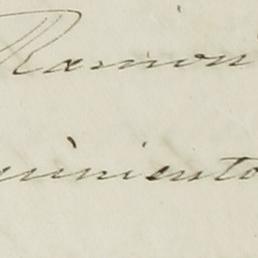 Ramon
imiento